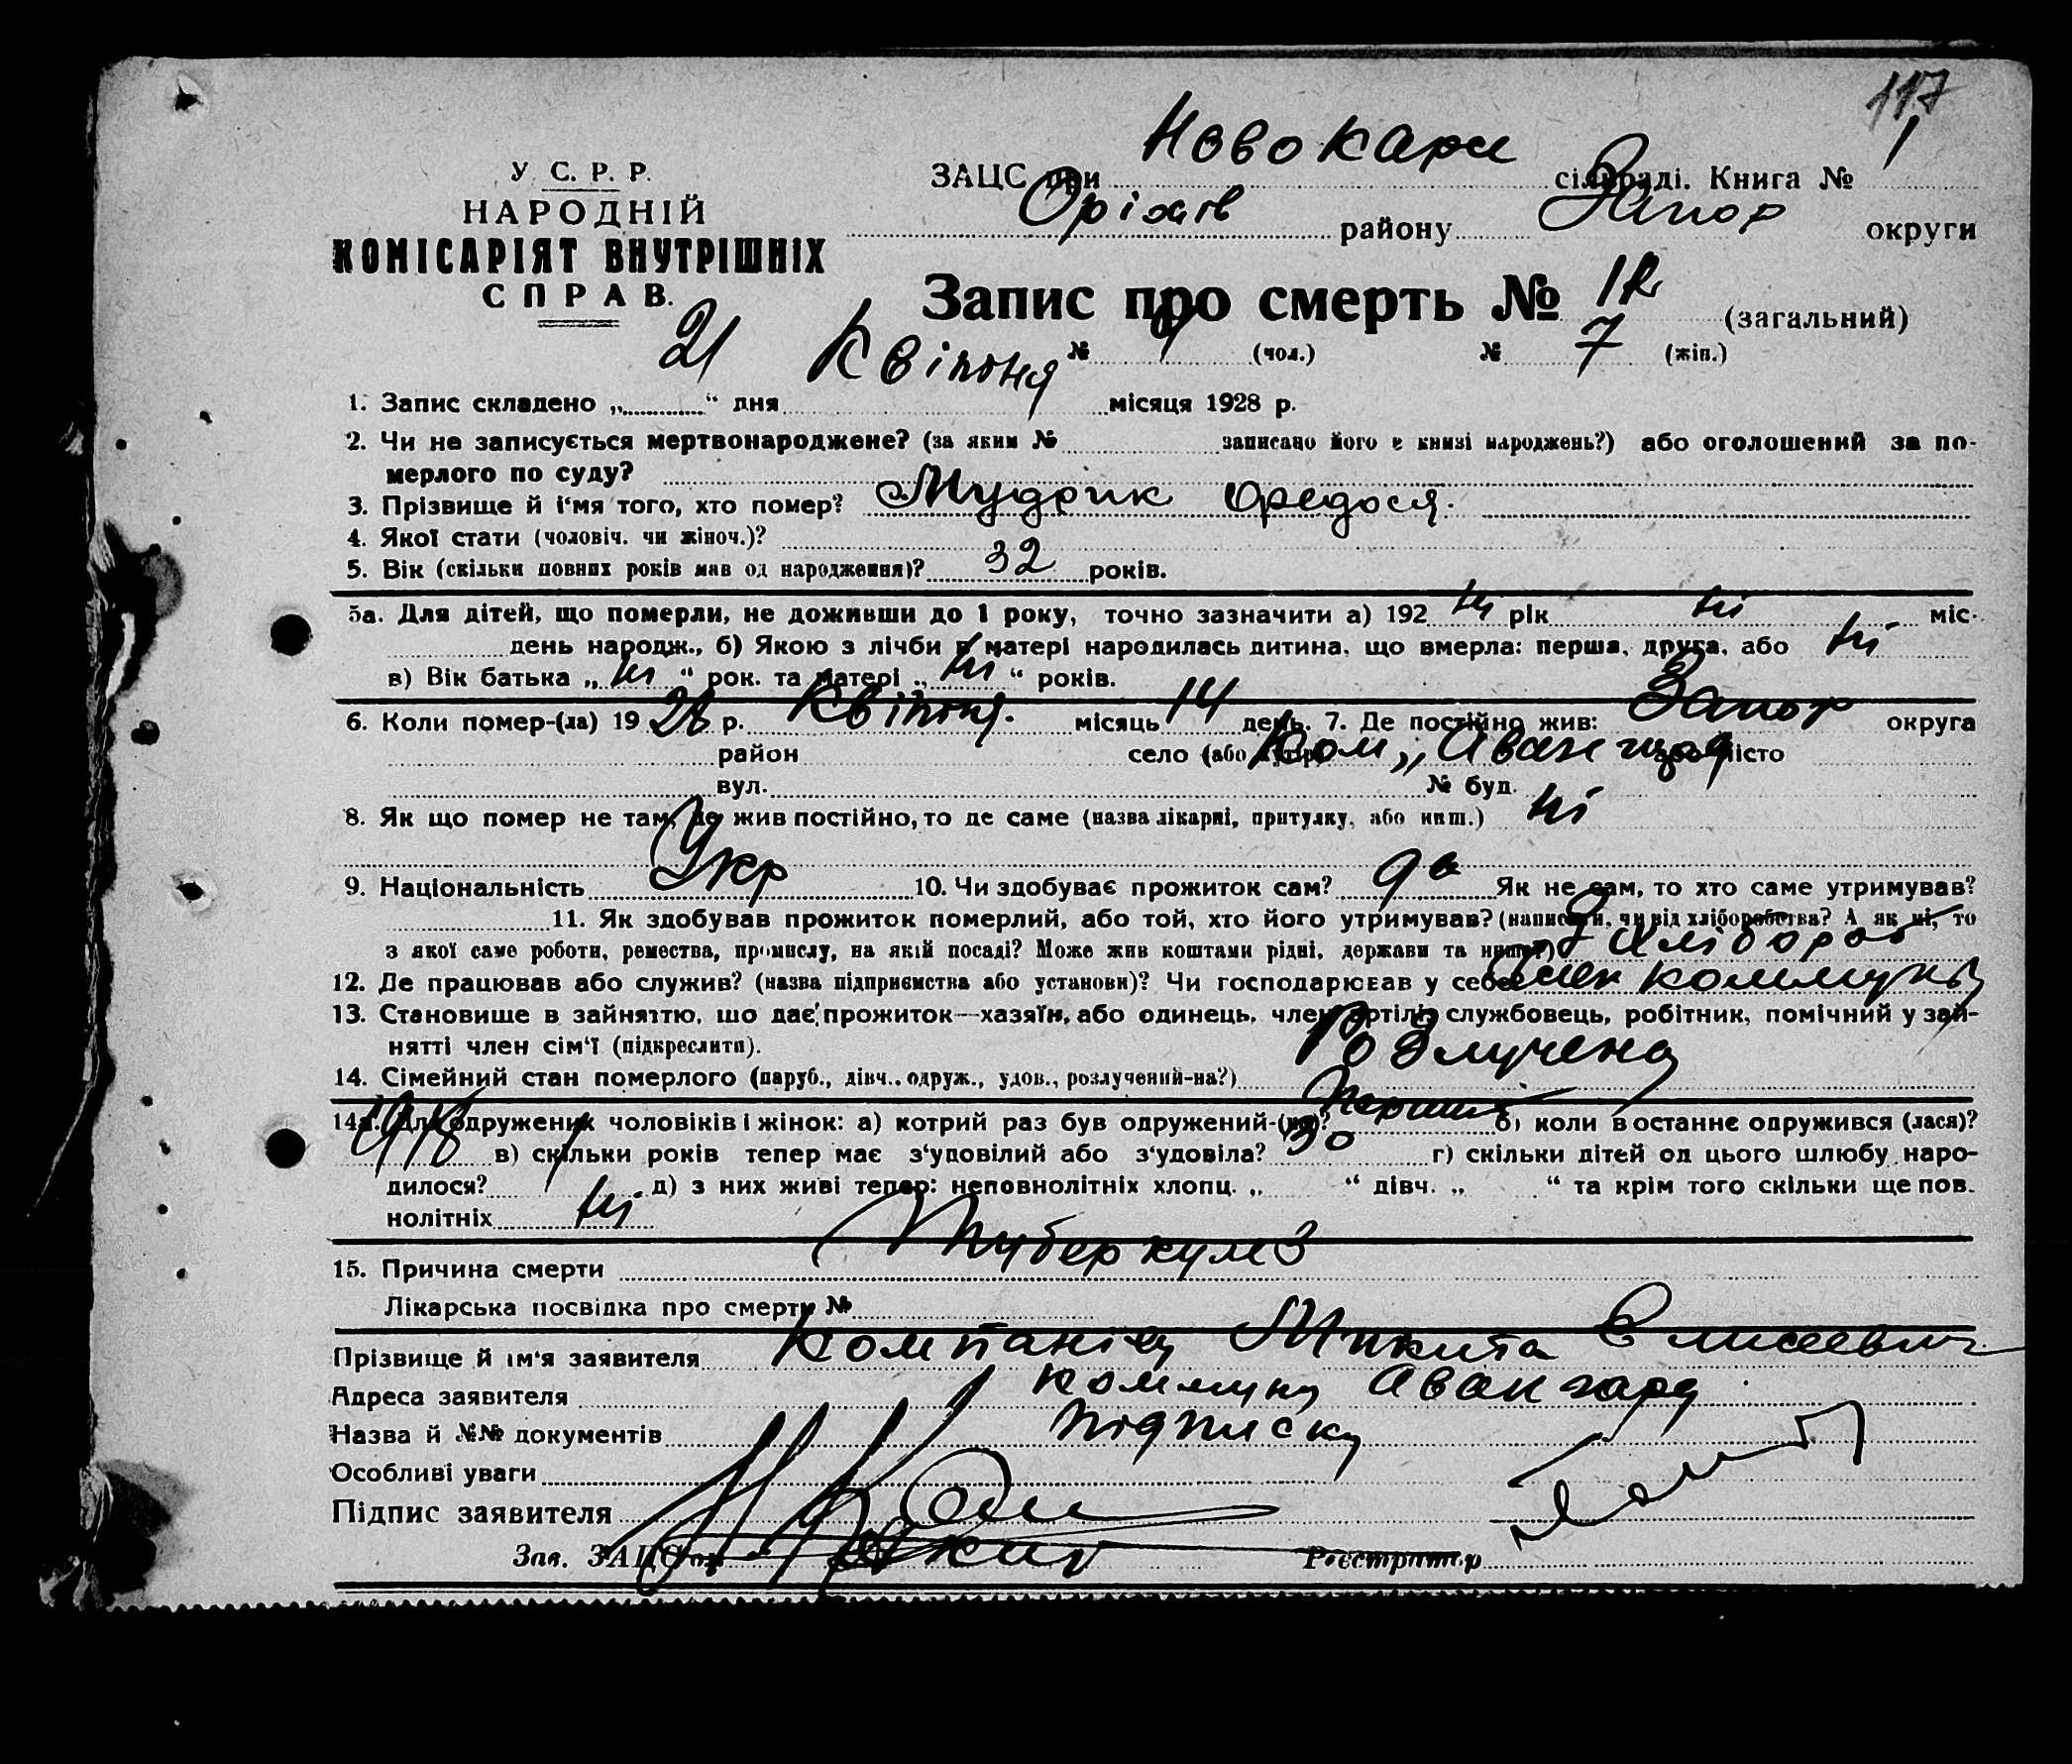 117
У С. Р. Р.
НАРОДНІЙ
КОМІСАРІЯТ ВНУТРІШНІХ
СПРАВ.
ЗАЦС при Новокарл сільраді. Книга № 1
Оріхів району Запор округи
Запис про смерть № 12 (загальний)
№ (чол.) № 7 (жін.)
1. Запис складено „21“ дня Квітня місяця 1928 р.
2. Чи не записується мертвонароджене? (за яким № записано його в книзі народжень?) або оголошений за по-
мерлого по суду?
3. Прізвище й і‘мя того, хто помер? Мудрик Федося.
4. Якої стати (чоловіч. чи жіноч.)?
5. Вік (скільки повних років мав од народження)? 32 років.
5а. Для дітей, що померли, не доживши до 1 року, точно зазначити а) 192 ні рік ні міс.
день народж., б) Якою з лічби в матері народилась дитина, що вмерла: перша, друга, або ні
в) Вік батька „ні“ рок. та матері „ні“ років.
6. Коли помер-(ла) 1928 р. Квітня. місяць 14 день. 7. Де постійно жив: Запор округа
район село (або хутір) Ком „Авангард або місто
вул. № буд.
8. Як що помер не там, де жив постійно, то де саме (назва лікарні, притулку, або инш.) ні
9. Національність Укр 10. Чи здобуває прожиток сам? да Як не сам, то хто саме утримував?
11. Як здобував прожиток померлий, або той, хто його утримував? (написати, чи від хліборобства? А як ні, то
з якої саме роботи, ремества, промислу, на якій посаді? Може жив коштами рідні, держави та инше) Хлібороб
12. Де працював або служив? (назва підприємства або установи)? Чи господарював у себе? член коммуны
13. Становище в зайняттю, що дає прожиток—хазяїн, або одинець, член артілі, службовець, робітник, помічний у зай-
нятті член сім‘ї (підкреслити).
14. Сімейний стан померлого (паруб., дівч., одруж., удов., розлучений-на?) Розлучена
14а. Для одружених чоловіків і жінок: а) котрий раз був одружений-(на)? перший б) коли в останнє одружився (лася)?
1918 в) скільки років тепер має з‘удовілий або з‘удовіла? 30 г) скільки дітей од цього шлюбу наро-
дилося? 1 д) з них живі тепер: неповнолітніх хлопц. „ “ дівч. „ “ та крім того скільки ще пов.
нолітніх ні
15. Причина смерти Туберкулез
Лікарська посвідка про смерть №
Прізвище й ім‘я заявителя Компаніец Микита Елисеевич
Адреса заявителя коммуну Авангард
Назва й №№ документів підписку
Особливі уваги
Підпис заявителя
Зав. ЗАЦС‘ом Реєстратор